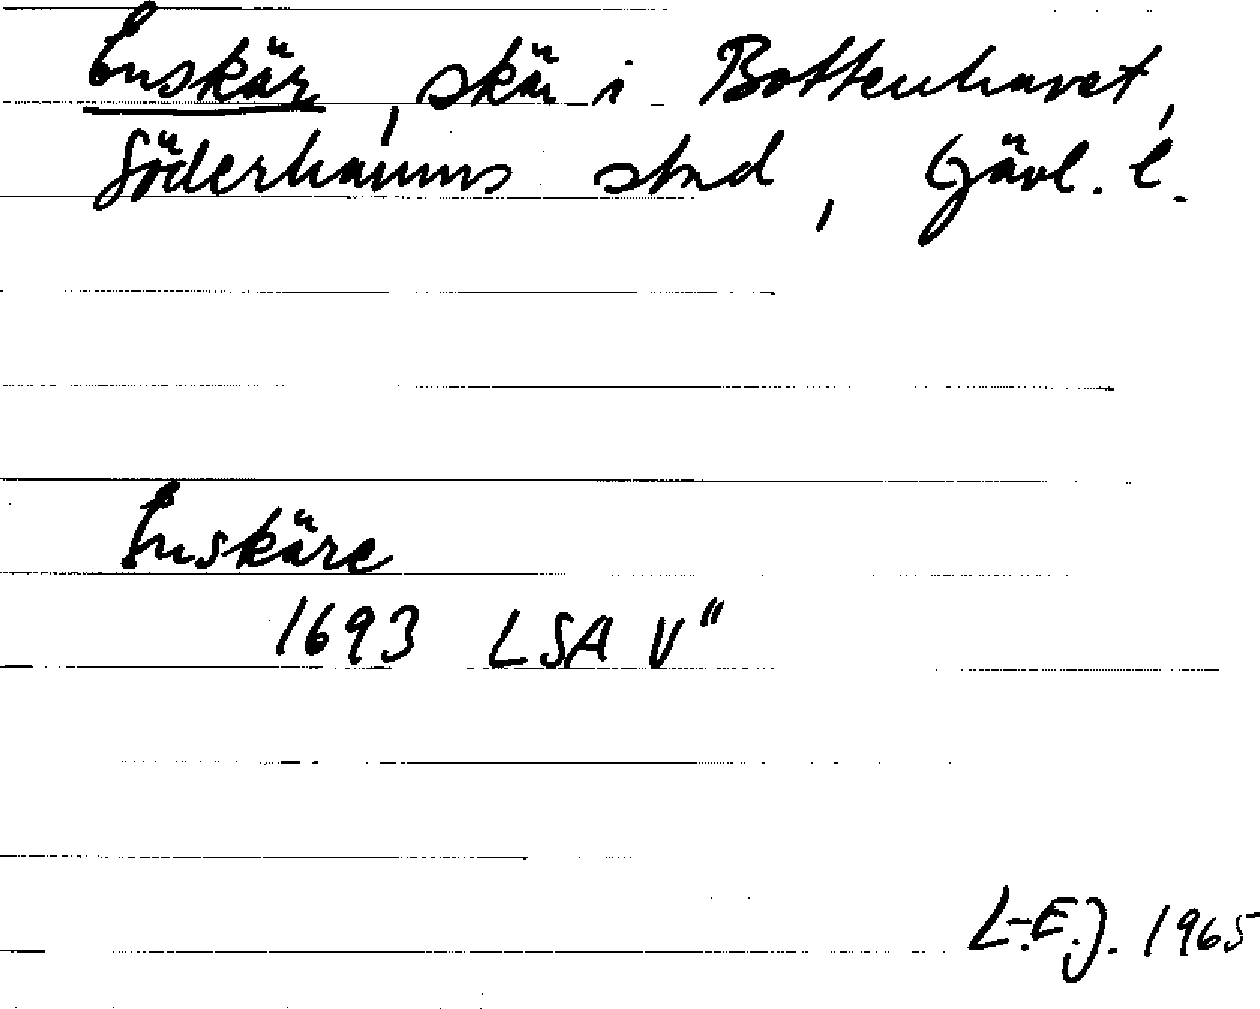 Enskär, skär i Bottenhavet,
Söderhamns stad, Gävl. l.
Enskäre
1693 LSA V"
L-E.J. 1965